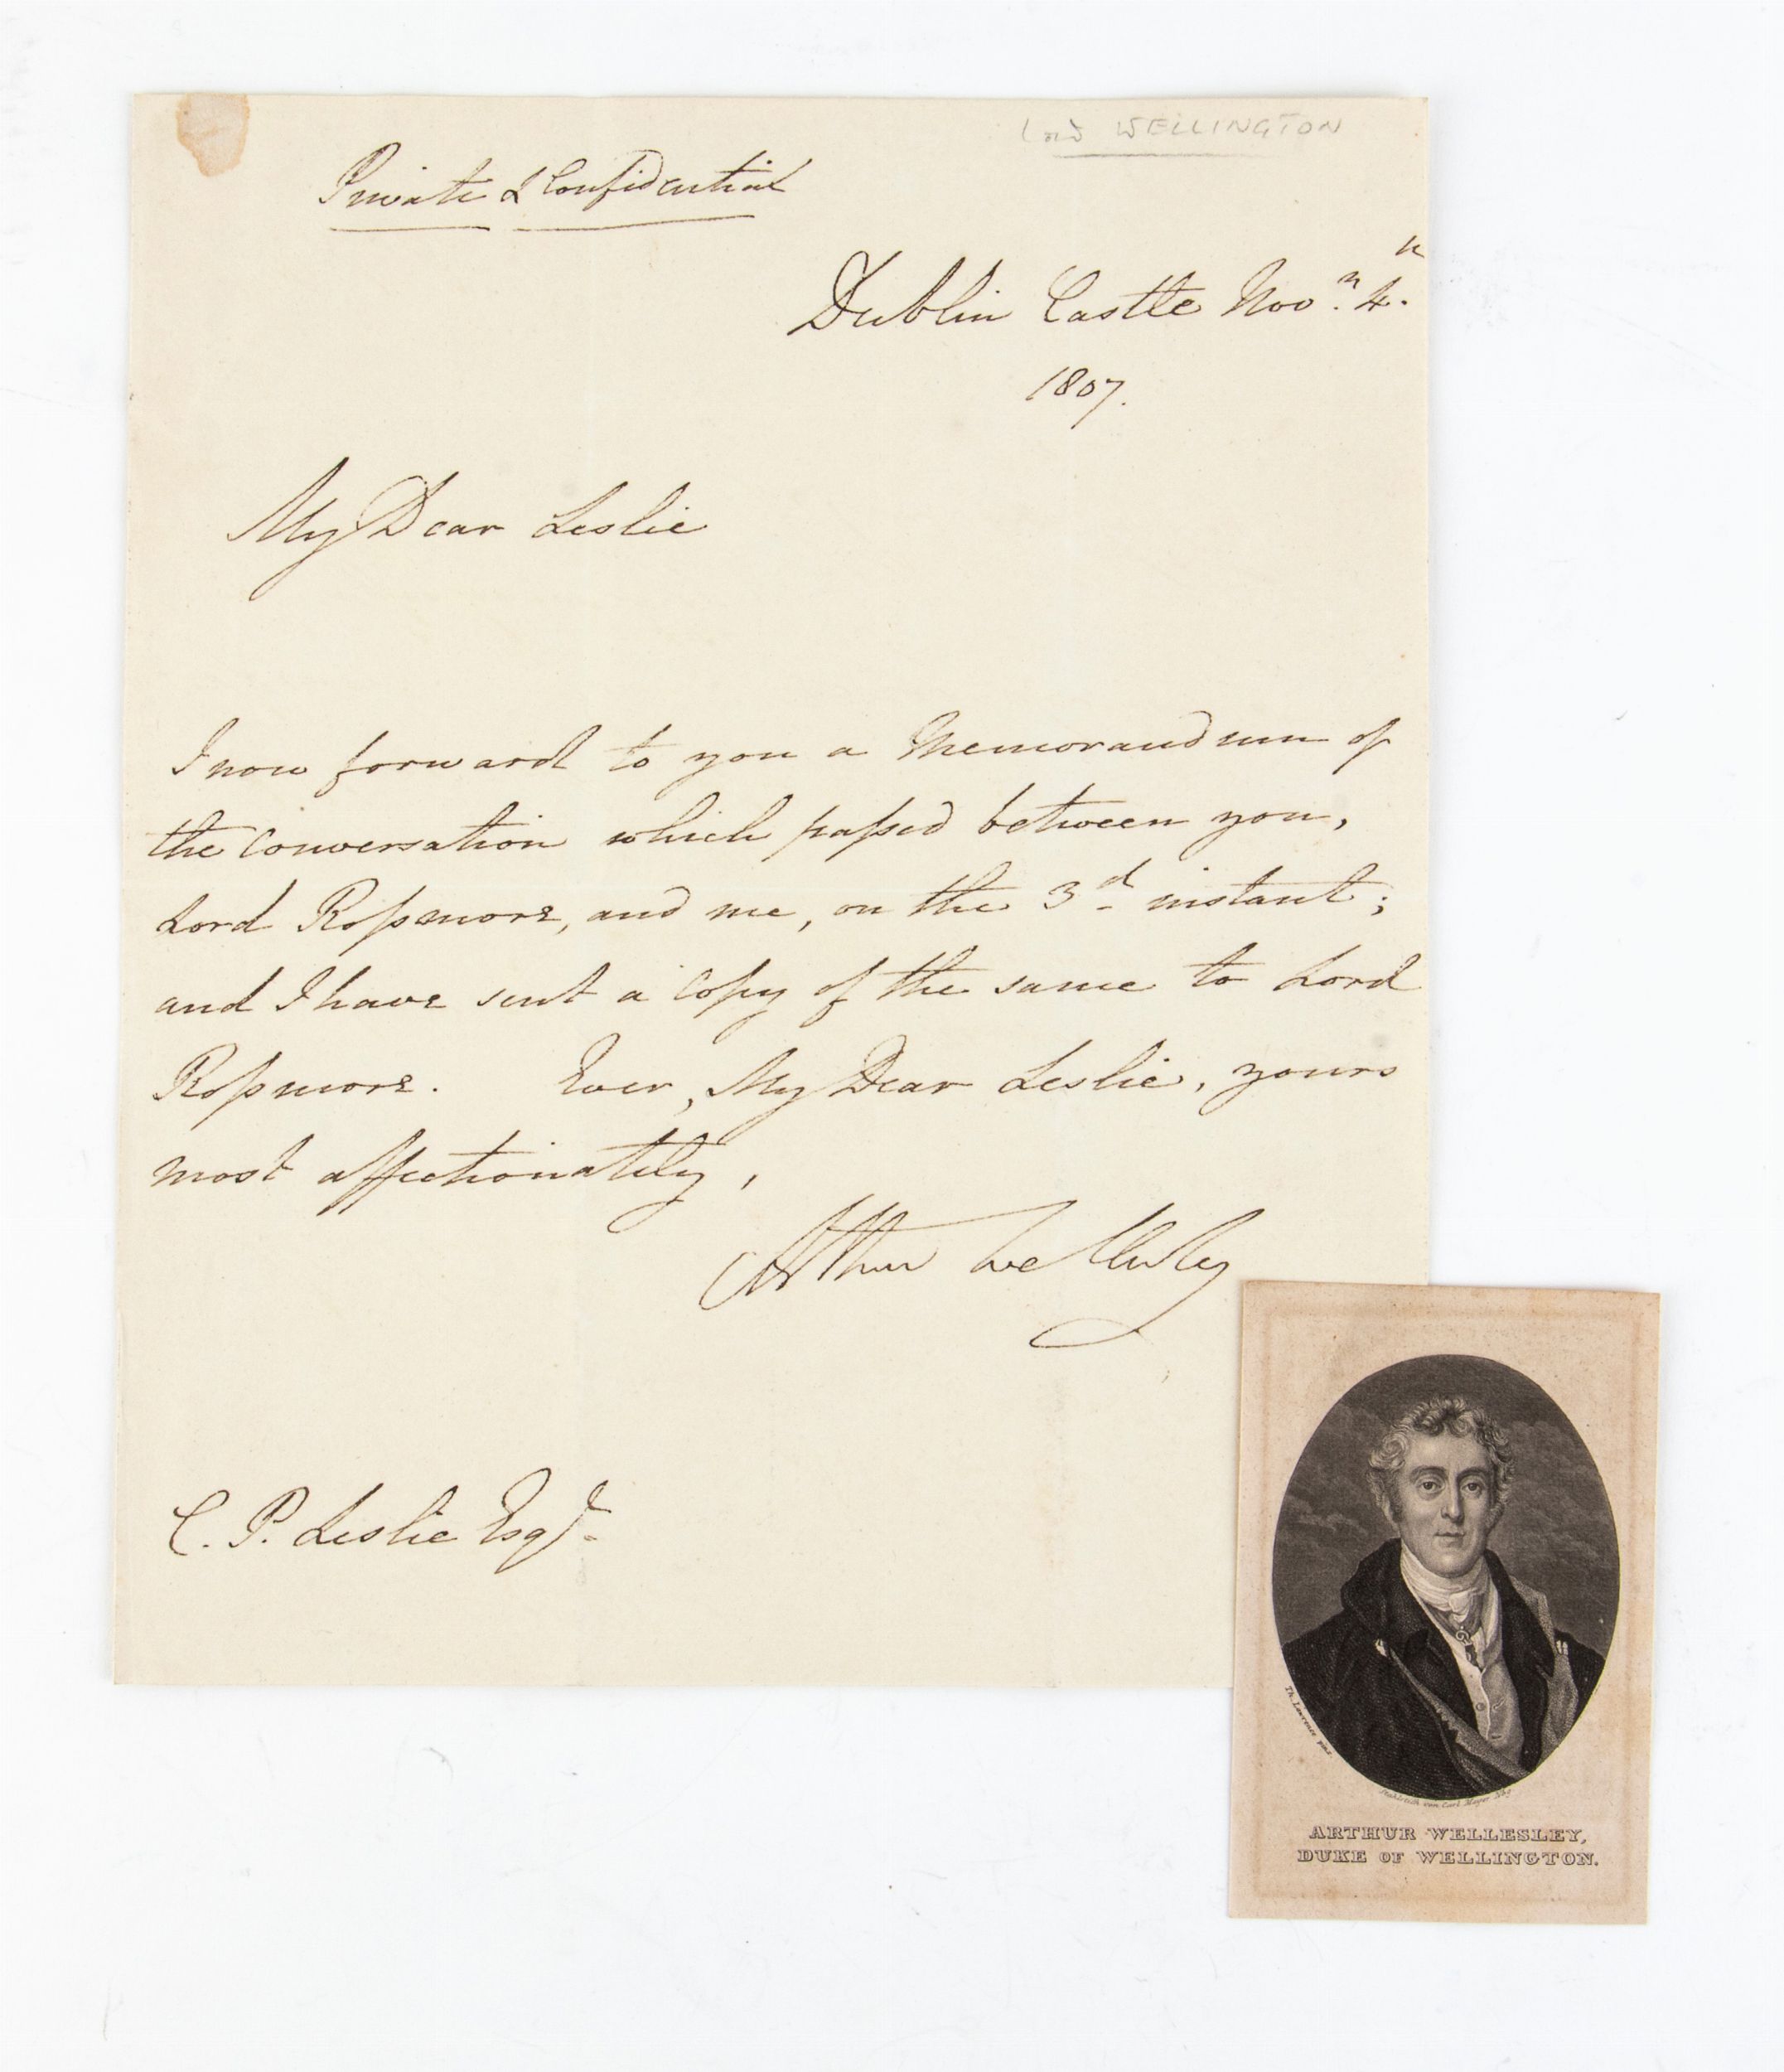 Lord WELLINGTON
Private & Confidential
Dublin Castle Nov.r 4.th
1807.
My Dear Leslie
I now forward to you a Memorandum of
the Conversation which paſsed between you,
Lord Roſsmore, and me, on the 3d instant;
and I have sent a Copy of the same to Lord
Roſsmore. Ever, My Dear Leslie, yours
most affectionately,
Arthur Wellesley
C. P. Leslie Esqr.
Th. Lawrence pinx.
Stahlstich von Carl Mayer Nbg.
ARTHUR WELLESLEY,
DUKE OF WELLINGTON.